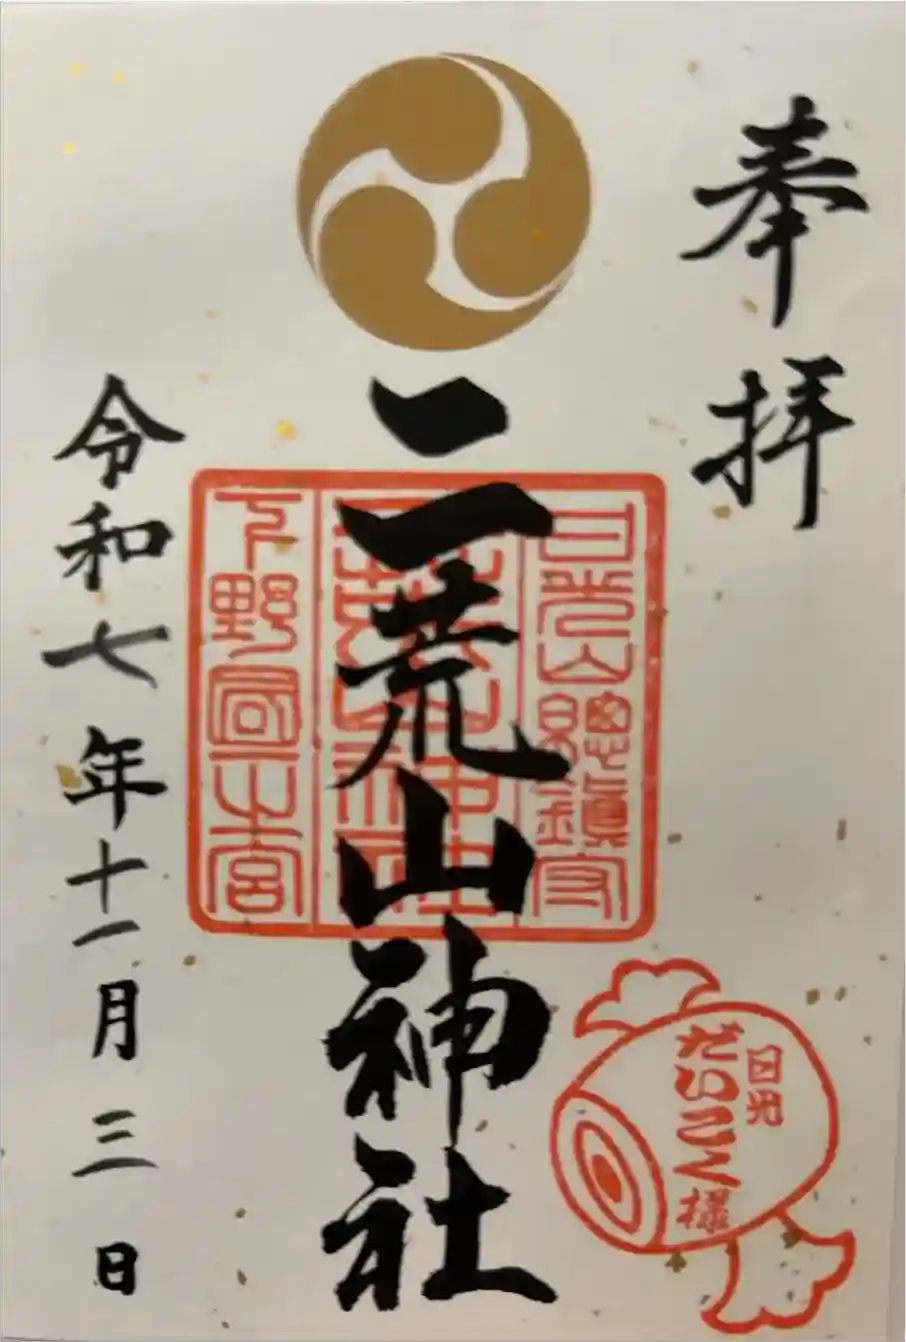 奉拝
日光山總鎮守
二荒山神社
二荒山神社
下野国一之宮
令和七年十一月三日
日光
だいこく様